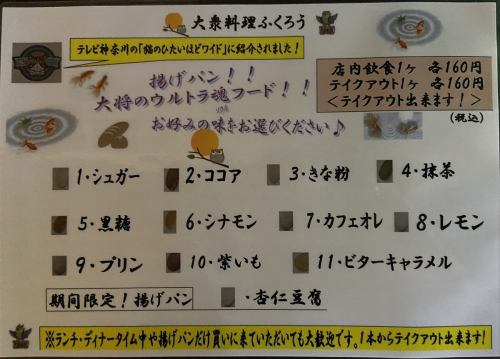 大衆料理ふくろう
テレビ神奈川の「猫のひたいほどワイド」に紹介されました!
揚げパン!!
大将のウルトラ魂フード!!
お好みの味をお選びください♪
店内飲食1ヶ 各160円
テイクアウト1ヶ 各160円
<テイクアウト出来ます!>
(税込)
1・シュガー 2・ココア 3・きな粉 4・抹茶
5・黒糖 6・シナモン 7・カフェオレ 8・レモン
9・プリン 10・紫いも 11・ビターキャラメル
期間限定!揚げパン ・杏仁豆腐
※ランチ・ディナータイム中や揚げパンだけ買いに来ていただいても大歓迎です。1本からテイクアウト出来ます!